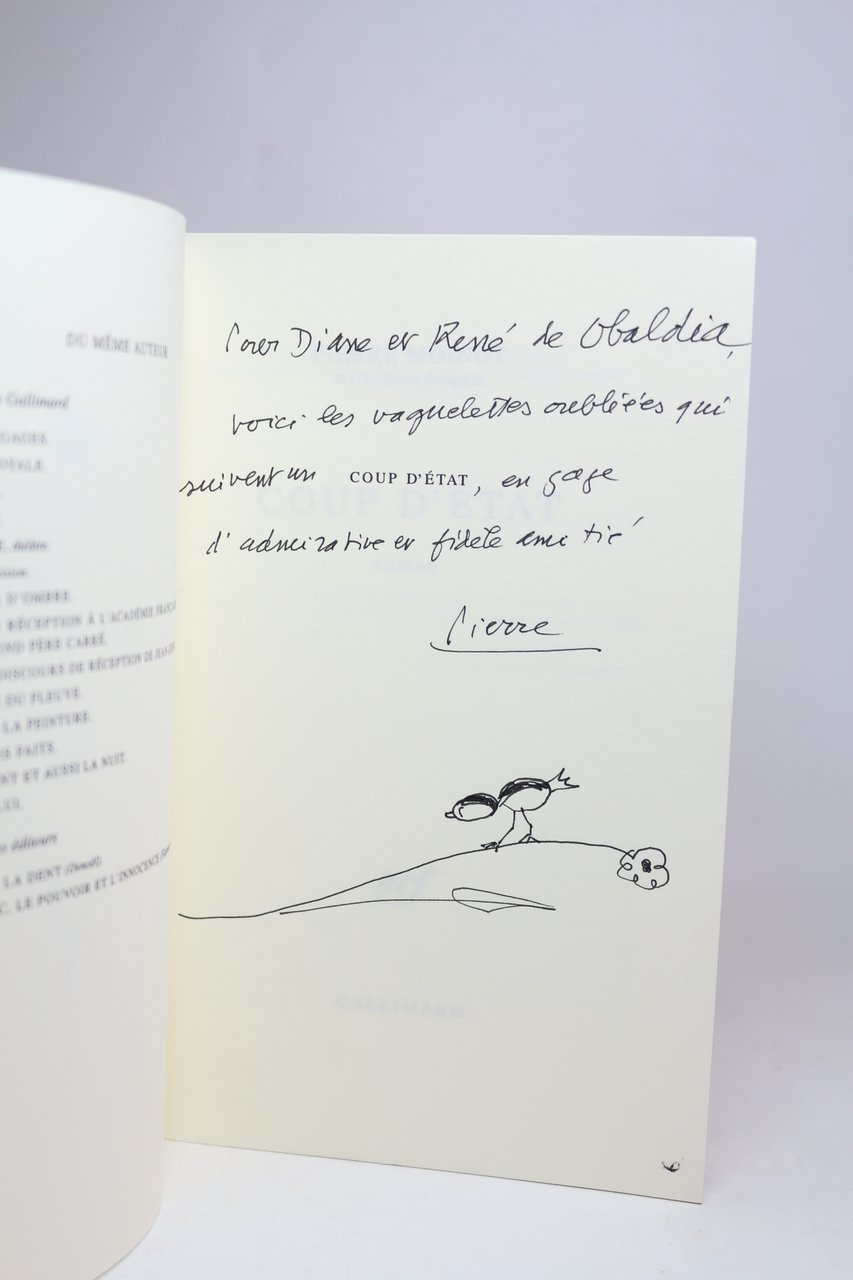 DU MÊME AUTEUR
Gallimard
D'OMBRE.
RÉCEPTION À L'ACADÉMIE
PÈRE CARRÉ
DISCOURS DE RÉCEPTION DE
DU FLEUVE.
LA PEINTURE.
FAITS.
ET AUSSI LA NUIT.
éditeurs
LA DENT (Denoël).
LE POUVOIR ET L'INNOCENCE
Pour Diane et René de Obaldia,
voici les vaguelettes oubliées qui
suivent un COUP D'ÉTAT, en gage
d'admirative et fidèle amitié
Pierre
COUP D'ÉTAT
roman
nrf
GALLIMARD